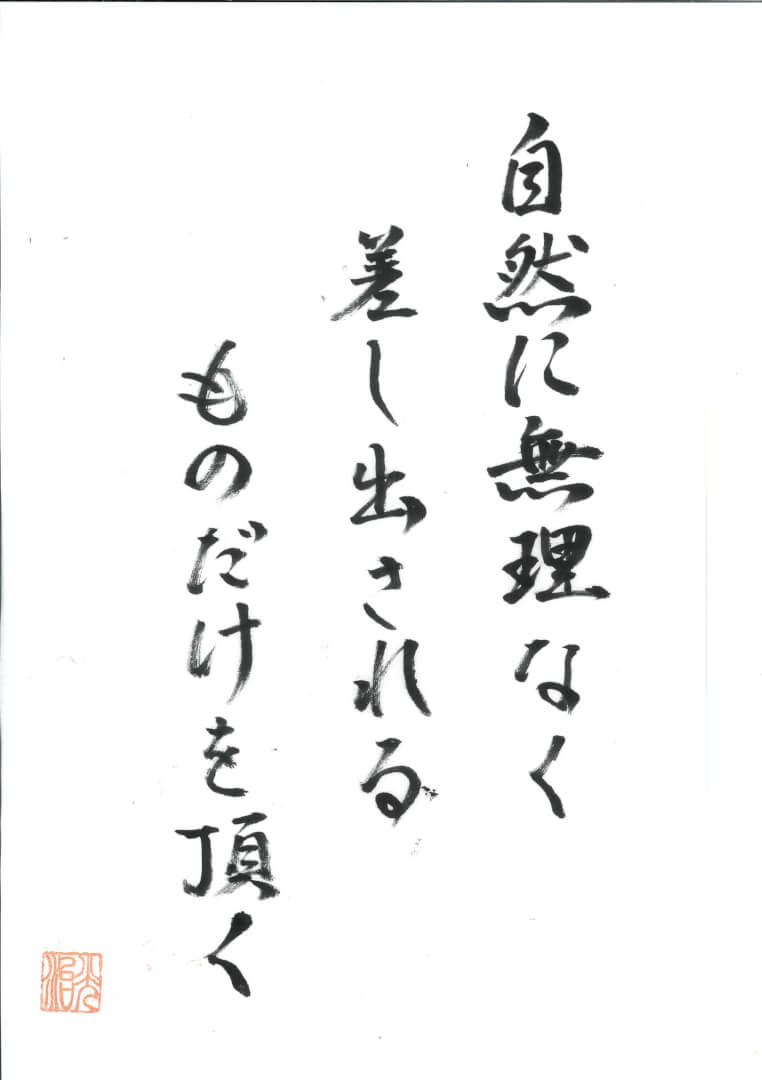 自然に無理なく
差し出される
ものだけを頂く